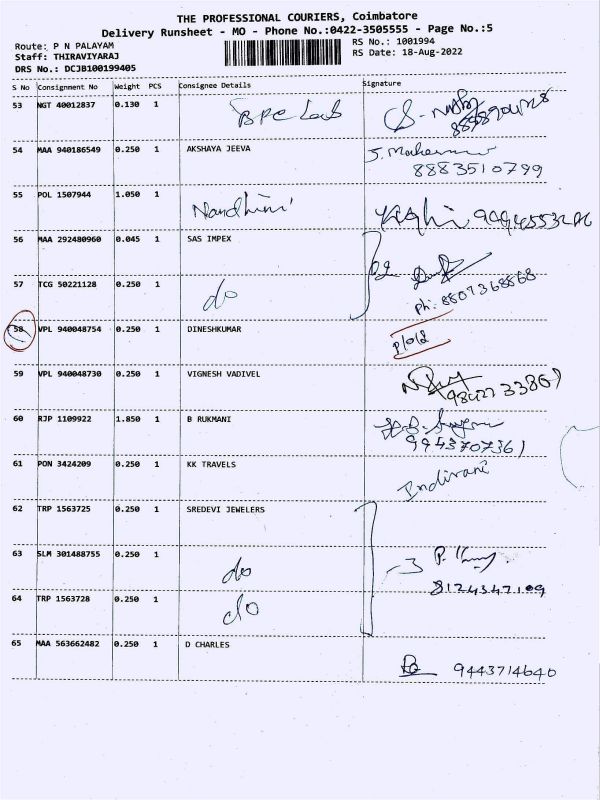 THE PROFESSIONAL COURIERS, Coimbatore
Delivery Runsheet - MO - Phone No.:0422-3505555 - Page No.:5
Route: P N PALAYAM
RS No.: 1001994
Staff: THIRAVIYARAJ
RS Date: 18-Aug-2022
DRS No.: DCJB100199405
S No Consignment No Weight PCS Consignee Details Signature
53 NGT 40012837 0.130 1 BPC Lab
54 MAA 940186549 0.250 1 AKSHAYA JEEVA
8883510799
55 POL 1507944 1.050 1 Nandhini
56 MAA 292480960 0.045 1 SAS IMPEX
57 TCG 50221128 0.250 1 do
ph: 8807368868
58 VPL 940048754 0.250 1 DINESHKUMAR
59 VPL 940048730 0.250 1 VIGNESH VADIVEL
60 RJP 1109922 1.850 1 B RUKMANI
9943707361
61 PON 3424209 0.250 1 KK TRAVELS Indirani
62 TRP 1563725 0.250 1 SREDEVI JEWELERS
63 SLM 301488755 0.250 1 do
8124347109
64 TRP 1563728 0.250 1 do
65 MAA 563662482 0.250 1 D CHARLES
9443714640